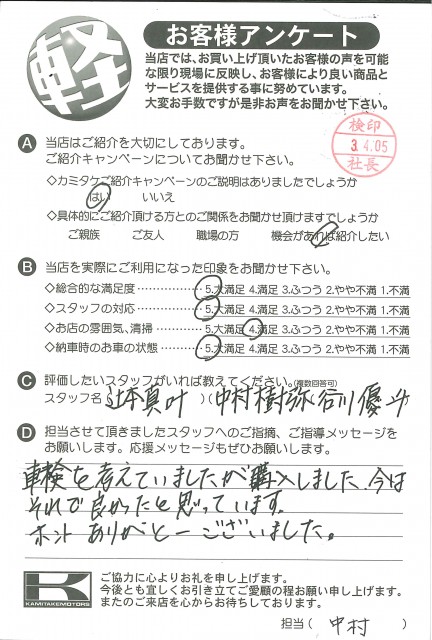 軽
お客様アンケート
当店では、お買い上げ頂いたお客様の声を可能
な限り現場に反映し、お客様により良い商品と
サービスを提供する事に努めています。
大変お手数ですが是非お声をお聞かせ下さい。
検印
3.4.05
社長
A 当店はご紹介を大切にしております。
ご紹介キャンペーンについてお聞かせ下さい。
◇カミタケご紹介キャンペーンのご説明はありましたでしょうか
はい いいえ
◇具体的にご紹介頂ける方とのご関係をお聞かせ頂けますでしょうか
ご親族 ご友人 職場の方 機会があれば紹介したい
B 当店を実際にご利用になった印象をお聞かせ下さい。
◇総合的な満足度‥‥‥‥‥5.大満足 4.満足 3.ふつう 2.やや不満 1.不満
◇スタッフの対応‥‥‥‥‥5.大満足 4.満足 3.ふつう 2.やや不満 1.不満
◇お店の雰囲気、清掃‥‥‥5.大満足 4.満足 3.ふつう 2.やや不満 1.不満
◇納車時のお車の状態‥‥‥5.大満足 4.満足 3.ふつう 2.やや不満 1.不満
C 評価したいスタッフがいれば教えてください。(複数回答可)
スタッフ名(辻本真叶)(中村樹弥 谷川優斗
D 担当させて頂きましたスタッフへのご指摘、ご指導メッセージを
お願いします。応援メッセージもぜひお願いします。
車検を考えていましたが購入しました。今は
それで良かったと思っています。
ホントありがとーございました。
K
KAMITAKEMOTORS
ご協力に心よりお礼を申し上げます。
今後とも宜しくお引き立てご愛顧の程お願い申し上げます。
またのご来店を心からお待ちしております。
担当( 中村 )